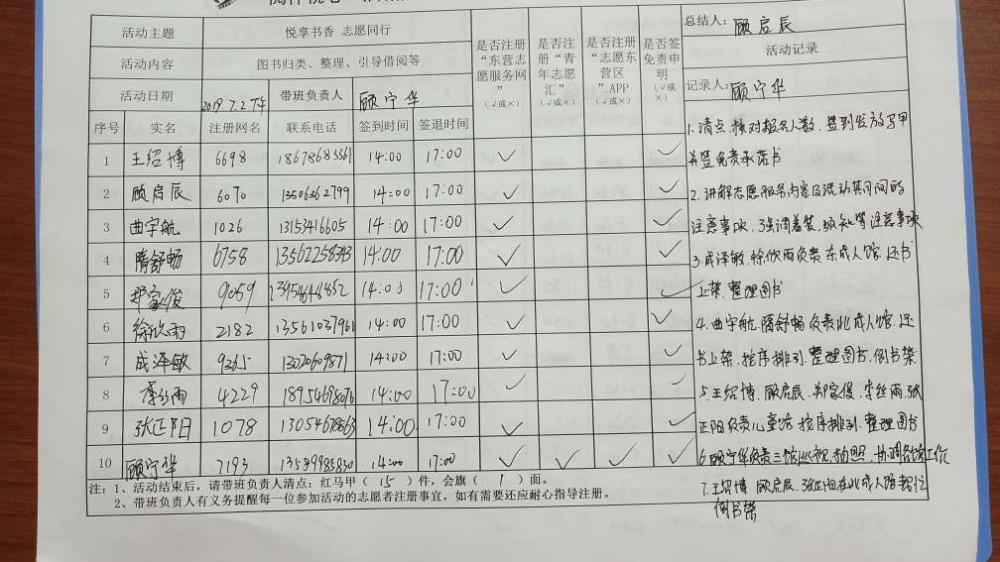 活动主题 悦享书香 志愿同行
活动内容 图书归类、整理、引导借阅等
活动日期 2019.7.2下午 带班负责人 顾宁华
是否注册“东营志愿服务网”（√或×）
是否注册“青年志愿汇”（√或×）
是否注册“志愿东营区”APP（√或×）
是否签免责申明（√或×）
总结人：顾启辰
活动记录
记录人：顾宁华
序号 实名 注册网名 联系电话 签到时间 签退时间
1 王绍博 6698 18678683361 14:00 17:00 √ √
2 顾启辰 6070 13506362799 14:00 17:00 √ √
3 曲宇航 1026 13153416605 14:00 17:00 √ √
4 隋舒畅 6758 14:00 17:00 √ √
5 郑家俊 9059 14:00 17:00 √ √
6 徐欣雨 2182 13561037961 14:00 17:00 √ √
7 成泽敏 9365 14:00 17:00 √ √
8 李丝雨 4229 14:00 17:00 √ √
9 张正阳 1078 13054678663 14:00 17:00 √ √
10 顾宁华 7193 14:00 17:00 √ √ √ √
1.清点、核对报名人数、签到发放马甲
并签免责承诺书
2.讲解志愿服务内容及活动期间的
注意事项、强调着装、须知等注意事项
3.成泽敏、徐欣雨负责东成人馆、还书
上架、整理图书
4.曲宇航、隋舒畅负责北成人馆、还
书上架、按序排列、整理图书、倒书架
5.王绍博、顾启辰、郑家俊、李丝雨、张
正阳负责儿童馆 按序排列、整理图书
6.顾宁华负责三馆巡视、拍照、协调各馆工作
7.王绍博、顾启辰、张正阳在北成人馆帮忙
倒书架
注：1、活动结束后，请带班负责人清点：红马甲（ 15 ）件，会旗（ 1 ）面。
2、带班负责人有义务提醒每一位参加活动的志愿者注册事宜，如有需要还应耐心指导注册。